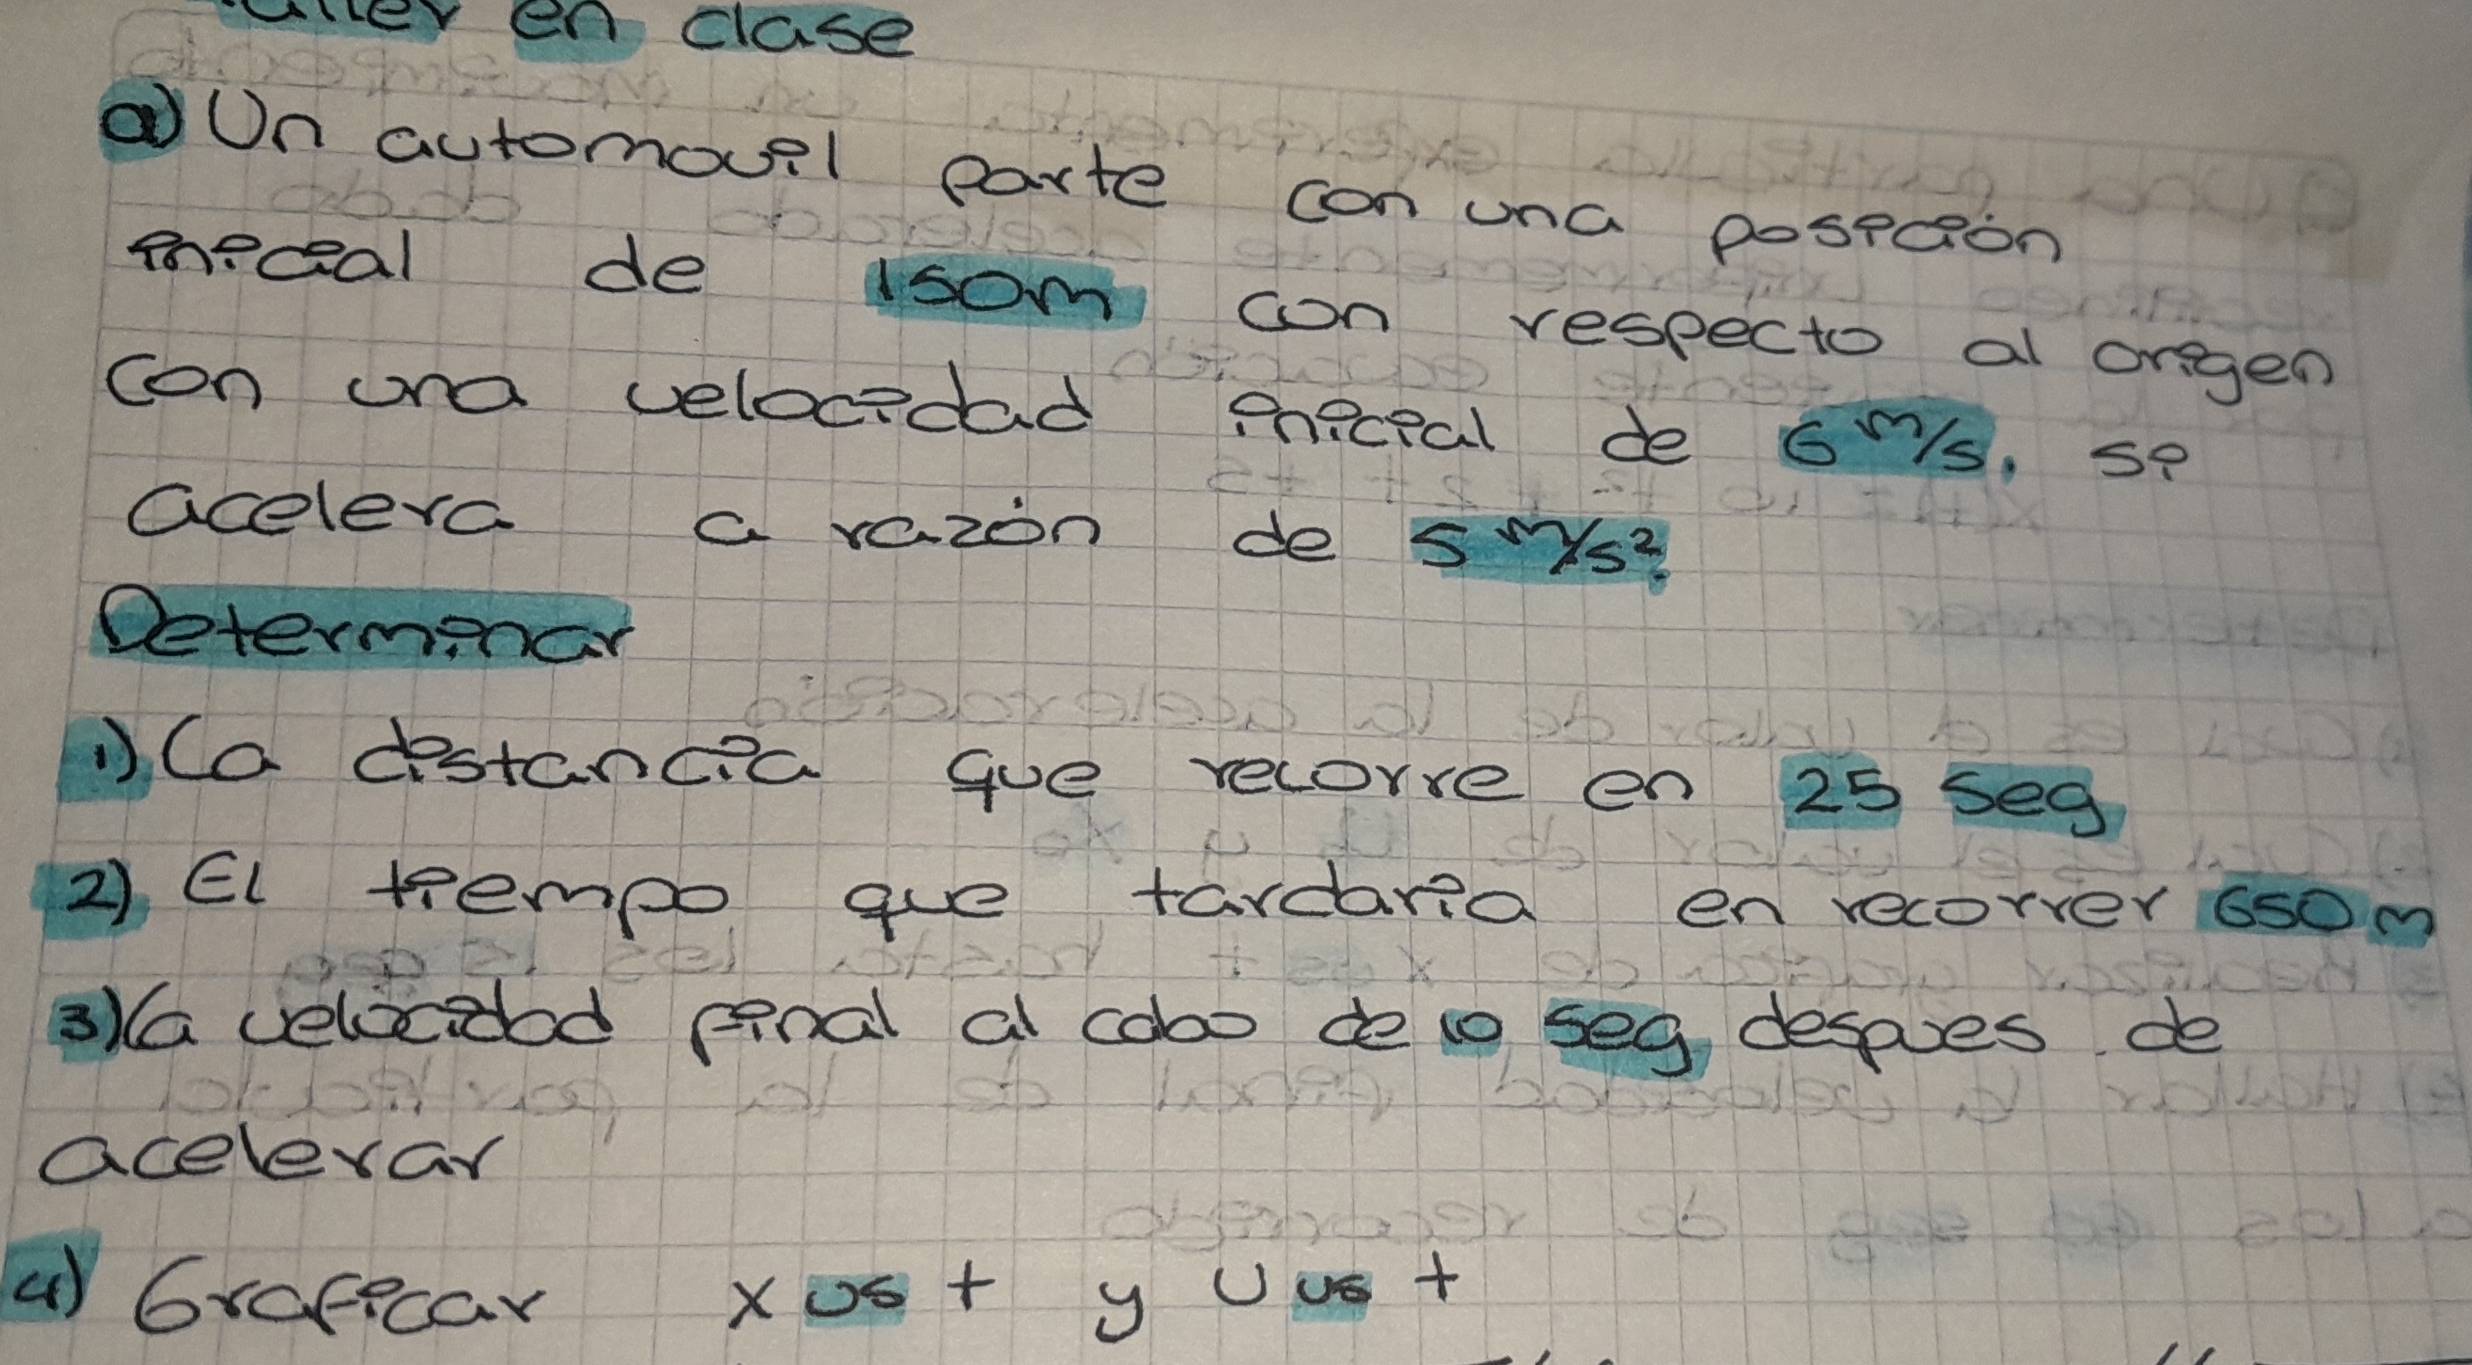 en clase
a) Un automovil parte con una posición
inicial de 150m con respecto al origen
con una velocidad inicial de 6 m/s. se
acelera a razón de 5 m/s².
Determinar
1) La distancia que recorre en 25 seg
2) El tiempo que tardaria en recorrer 650 m
3) la velocidad final al cabo de 10 seg despues de
acelerar
4) Graficar x vs t y v vs t